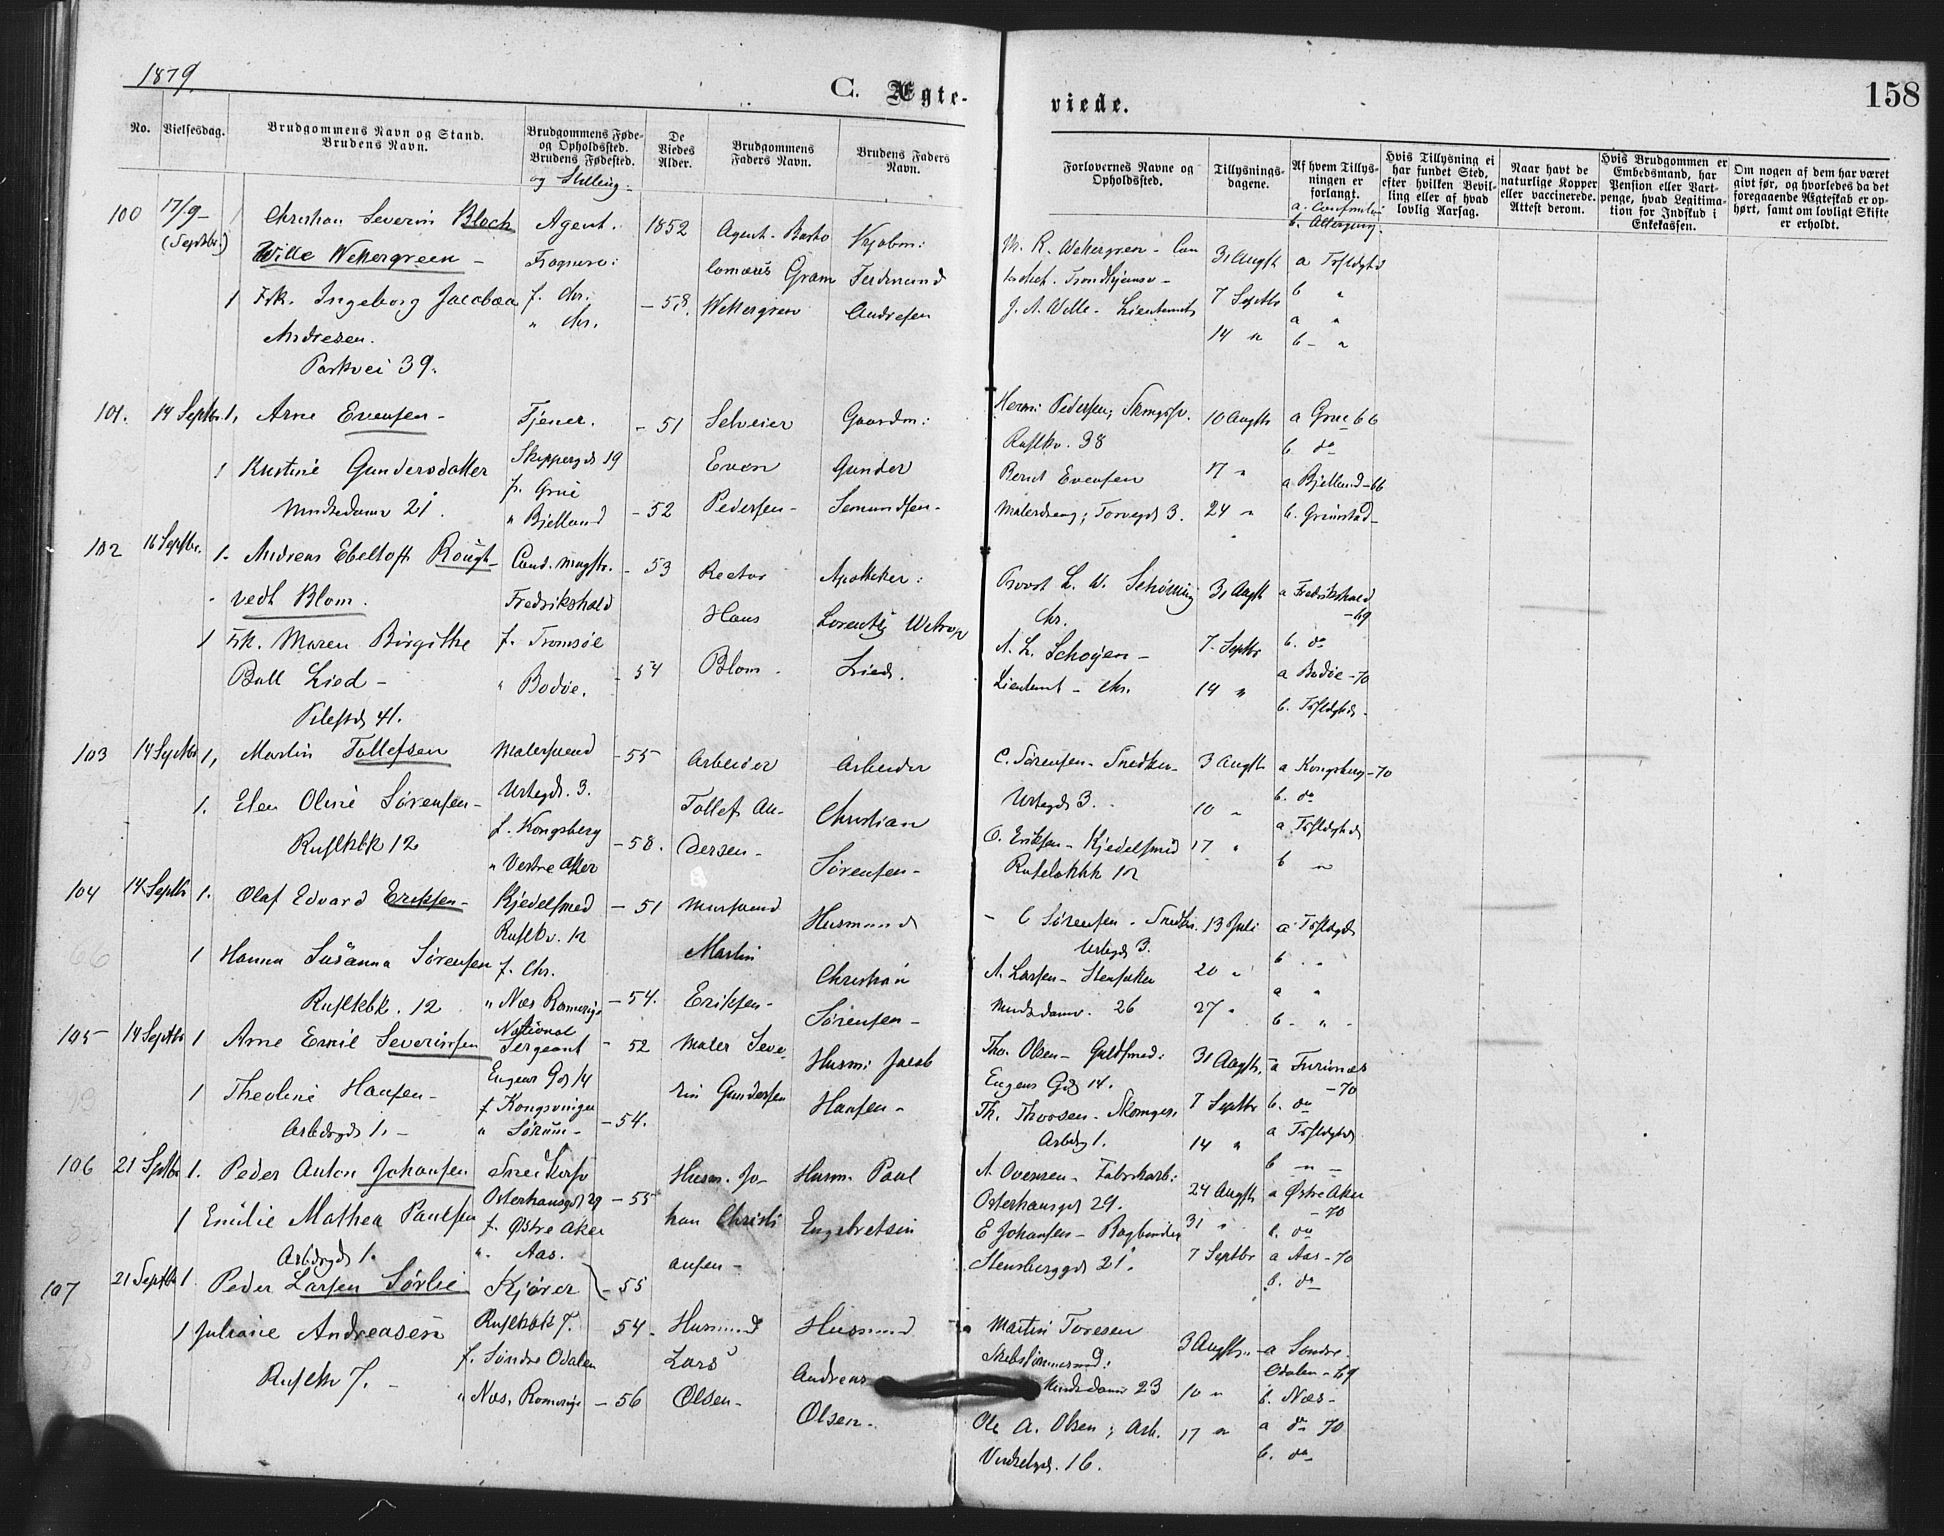 1879.
C. Ægte-
viede.
158
No.
Vielsesdag.
Brudgommens Navn og Stand.
Brudens Navn.
Brudgommens Føde-
og Opholdssted.
Brudens Fødested.
og Stilling.
De
Viedes
Alder.
Brudgommens
Faders Navn.
Brudens Faders
Navn.
Forlovernes Navne og
Opholdssted.
Tillysnings-
dagene.
Af hvem Tillys-
ningen er
forlangt.
a. Confirmation
b. Altergang.
Hvis Tillysning ei
har fundet Sted,
efter hvilken Bevil-
ling eller af hvad
lovlig Aarsag.
Naar havt de
naturlige Kopper
eller vaccinerede.
Attest derom.
Hvis Brudgommen er
Embedsmand, har
Pension eller Vart-
penge, hvad Legitima-
tion for Indskud i
Enkekassen.
Om nogen af dem har været
givt før, og hvorledes da det
foregaaende Ægteskab er op-
hørt, samt om lovligt Skifte
er erholdt.
100
17/9-
(Septbr.)
1
Christian Severin Bloch
Wille Wettergreen -
1 Frk. Ingeborg Jacobaa
Andresen.
Parkvei 39.
Agent.
f. Chr.
" Chr.
1852
- 58.
Agent. Barto
lomæus Gram
Wettergreen
Ferdinand
Andresen
M. R. Wettergreen -
J. A. Wille - Lieutenant
31 Augst
7 Septbr
14 "
a
b "
a "
b - "
101.
14 Septbr. 1,
Arne Evensen -
1 Kristine Gundersdatter
21.
Tjener.
Skipperg. 19
f. Grue
" Bjelland
- 51
- 52
Selveier
Even
Pedersen -
Gaardm:
Gunder
Semundsen -
Herm: Pedersen,
Ruslkv. 38
Bernt Evensen
Malerdreng; Torvegd. 3.
10 Augst
17 "
24 "
a Grue 66
b do
a Bjelland - 66
b. Grimstad -
102
16 Septbr.
1. Andreas Ebeltoft Rough-
vedt Blom.
1 Frk. Maren Birgitthe
Ball Lied -
Pilestd. 41.
Cand. Magstr.
Fredrikshald
f. Tromsøe
" Bodøe.
- 53
- 54
Rector
Hans
Blom.
Apotheker:
Lorentz
Lied.
Provst L. W.
Chr.
A. L. Schøyen -
Lieutenant - Chr.
31 Augst
7. Septbr
14 "
a Fredrikshald
- 69
b. do
a Bodøe - 70
103
14 Septbr 1,
Martin Tollefsen
1. Elen Oline Sørensen -
Ruslkbk 12
Malersvend
Urtegd. 3.
f. Kongsberg
" Vestre Aker
- 55
- 58.
Arbeider
Tollef An-
dersen -
Arbeider
Christian
Sørensen -
C. Sørensen - Snedker -
Urtegd. 3.
O. Eriksen - Kjedelsmed
Ruseløkbk 12
3 Augst
10 "
17 "
a Kongsberg - 70
b. do
a
b "
104
14 Septbr 1.
Olaf Edvard Eriksen -
1 Hanna Susanna Sørensen
Ruslkbk. 12
Kjedelsmed
Ruslkv. 12
f. Chr.
" Næs Romerige
- 51
- 54.
Mursvend
Martin
Eriksen -
Husmand
Christian
Sørensen -
- C Sørensen - Snedkr.
Urtegd. 3.
A. Larsen -
26
13 Juli
20 "
27 "
a
b. "
a "
b - " -
105
14 Septbr 1
Arne Emil Severinsen
1 Theoline Hansen -
Arbdrgd. 1. -
National
Sergeant
Engens Gd 14
f Kongsvinger
" Sørum -
- 52
- 54.
Maler Seve-
rin Gundersen
Husm: Jacob
Hansen -
Tho. Olsen - Guldsmed:
Engens Gd. 14.
Th. Thorsen -
Arbdg 1.
31 Augst.
7 Septbr
14 "
a Furunæs
- 70
b. do
a
b - " -
106
21 Septbr 1.
Peder Anton Johansen
1 Emilie Mathea Paulsen
Arbdrgd. 1.
Osterhausgd 29
f. Østre Aker
" Aas.
- 55
Husm. Jo-
han Christi
ansen -
Husm. Paul
Engebretsen
A. Ovensen - Fabrikarb:
Osterhausgd 29.
E Johansen - Bogbinder
Stensberggd. 21.
24 Augst
31 "
7 Septbr
a Østre Aker
- 70
b. do
a Aas - 70
b. do
107
21 Septbr 1.
Peder Larsen Sørlie
1 Juliane Andreasen
Ruslkv 7. -
Kjører
Ruslkbk 7.
f. Søndre Odalen
" Næs, Romerige
- 55
54.
- 56
Husmand
Lars
Olsen -
Husmand
Andreas
Olsen -
Martin Toresen
23
Ole A. Olsen; Arb.
16.
3 Augst. -
10 "
17 "
a Søndre
Odalen - 69
b. Næs -
a do 70
b. do